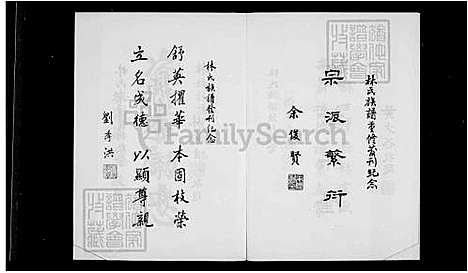 林氏族譜重修發刊紀念
宗派繁衍
余俊賢
林氏族譜發刊紀念
舒英擢華本固枝榮
立名成德以顯尊親
劉季洪
FamilySearch